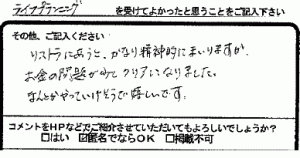 ライフプランニング を受けてよかったと思うことをご記入下さい
その他、ご記入ください
リストラにあうと、かなり精神的にまいりますが、
お金の問題がみてクリアになりました。
なんとかやっていけそうで嬉しいです。
コメントをHPなどでご紹介させていただいてもよろしいでしょうか?
□はい ☑匿名でならOK □掲載不可